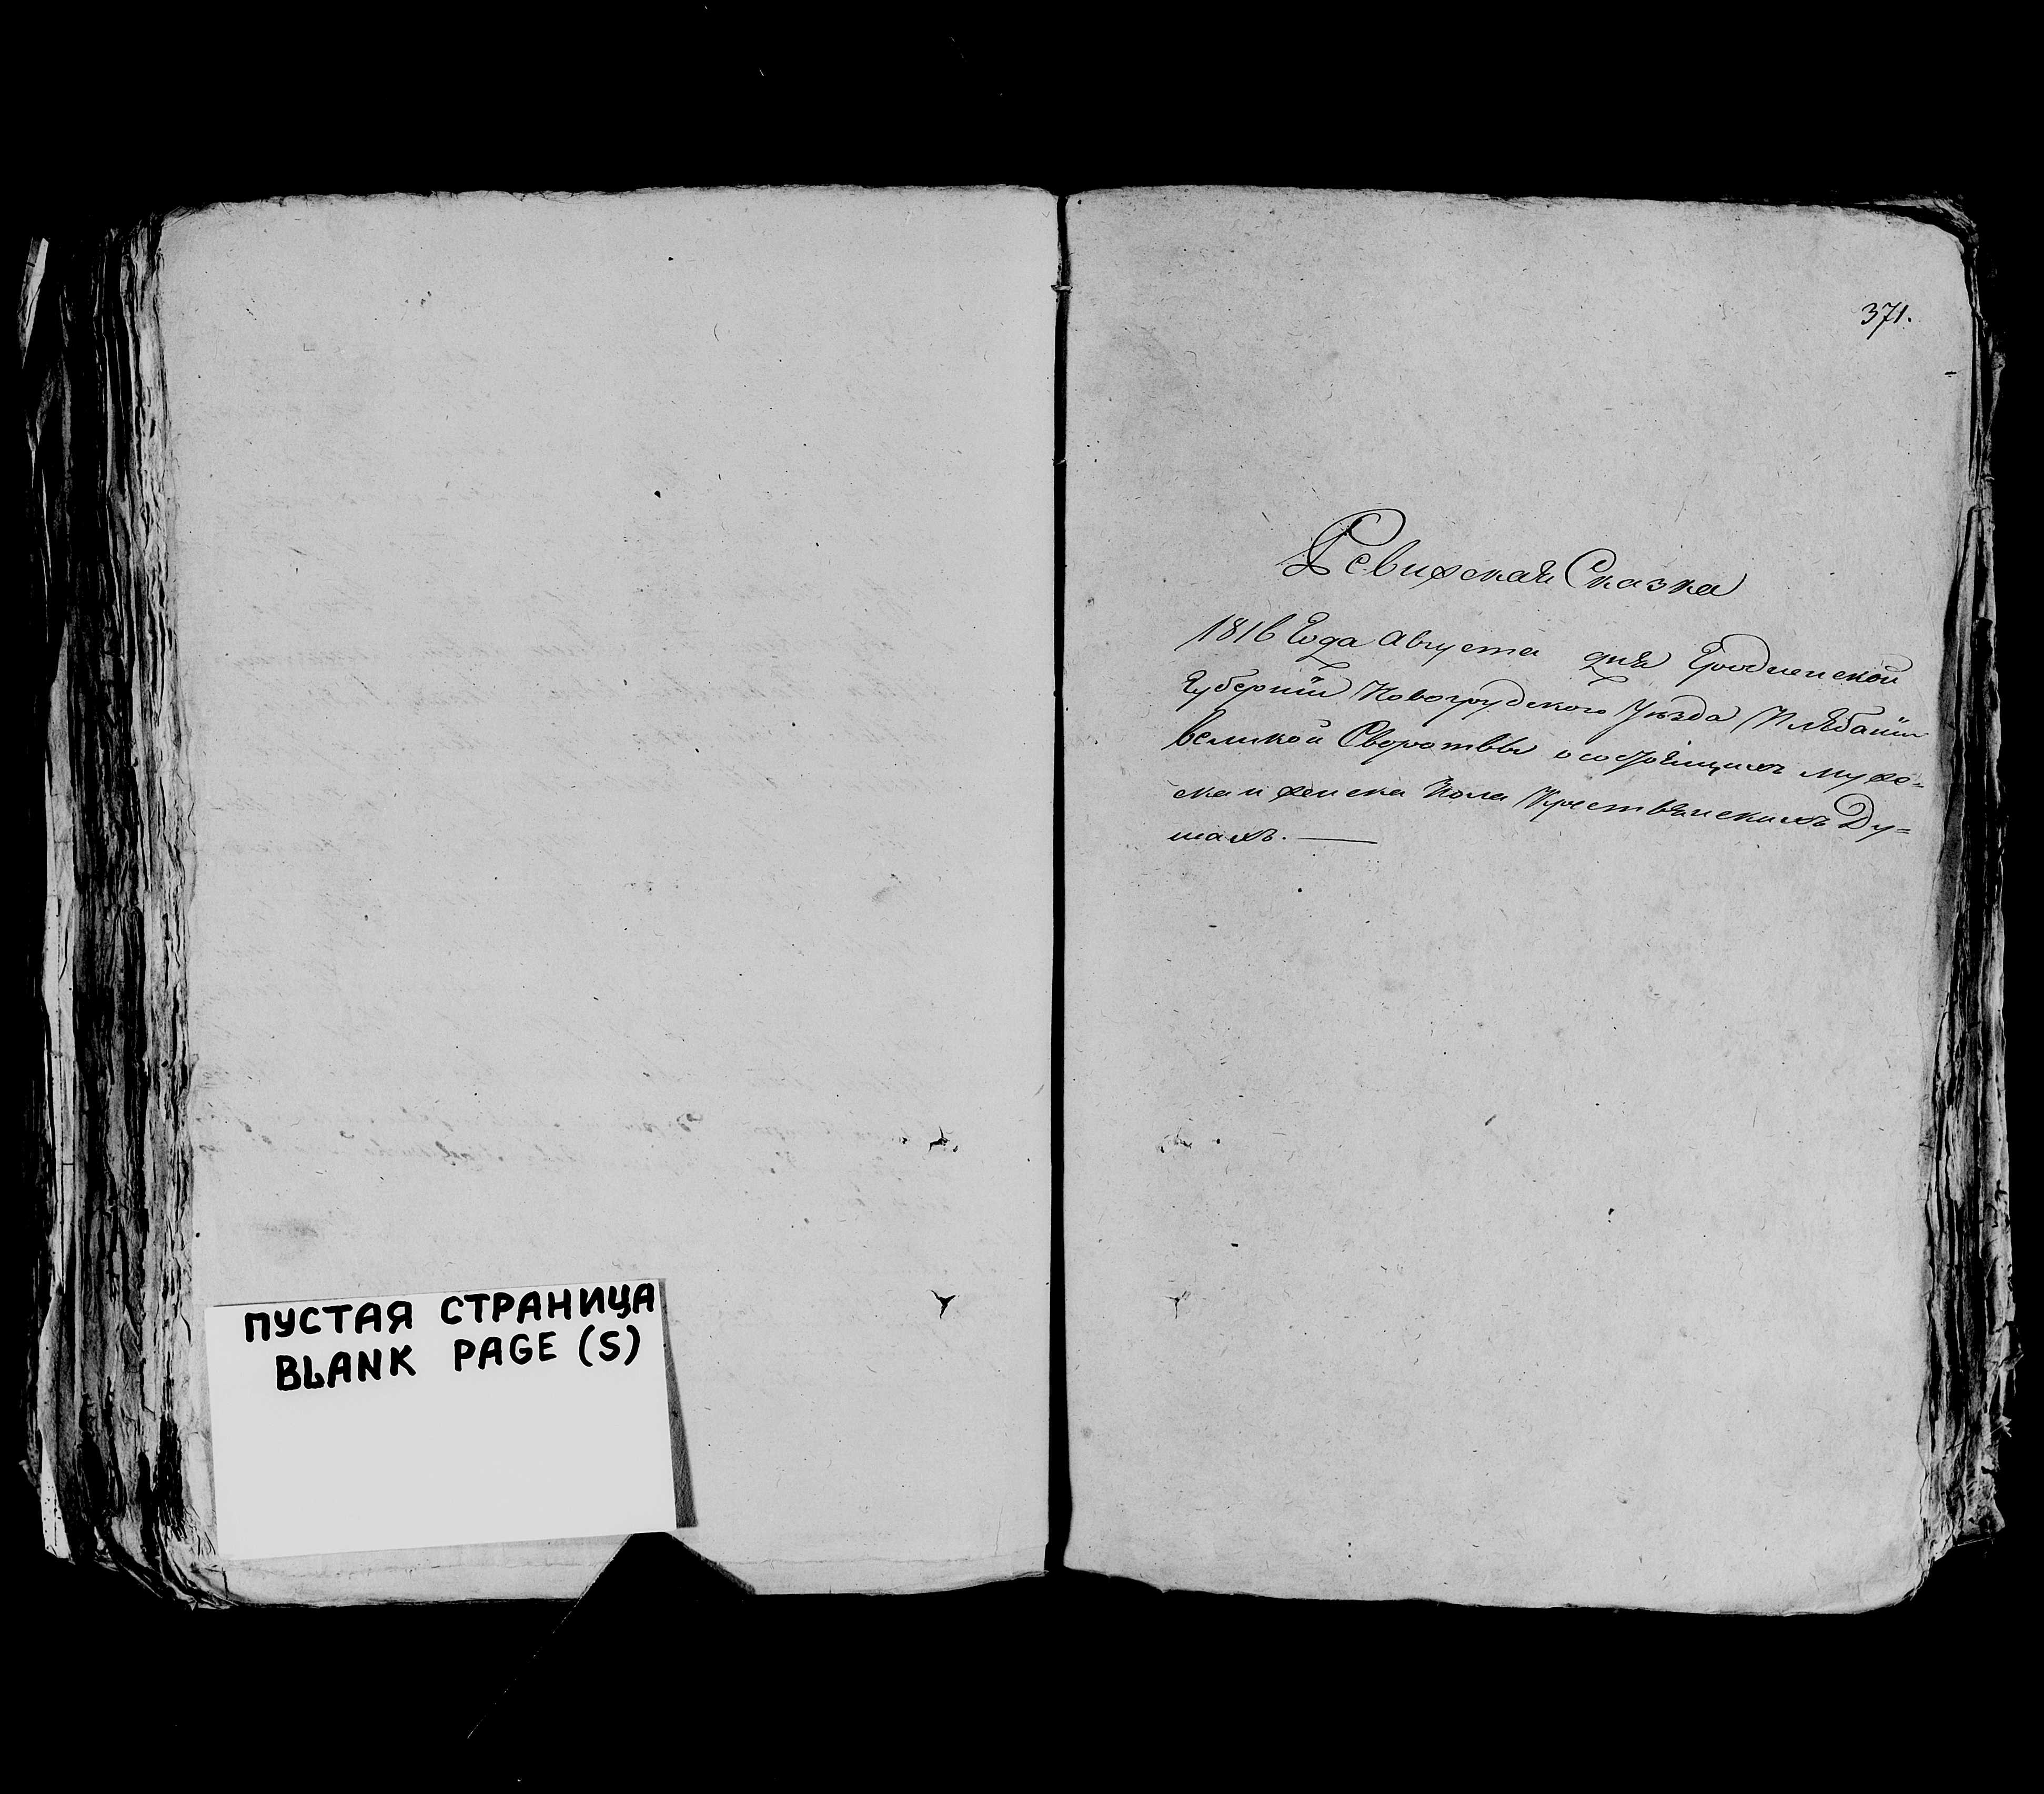 ПУСТАЯ СТРАНИЦА
BLANK PAGE (S)
371.
Ревижская Сказка
1816 Года Августа дня Гродненской
Губернїи Новогрудского Уѣзда Плябанїи
великой Сворот​вы о состоящихъ муже-
ска и женска Пола Крестьянскихъ Ду=
шахъ.